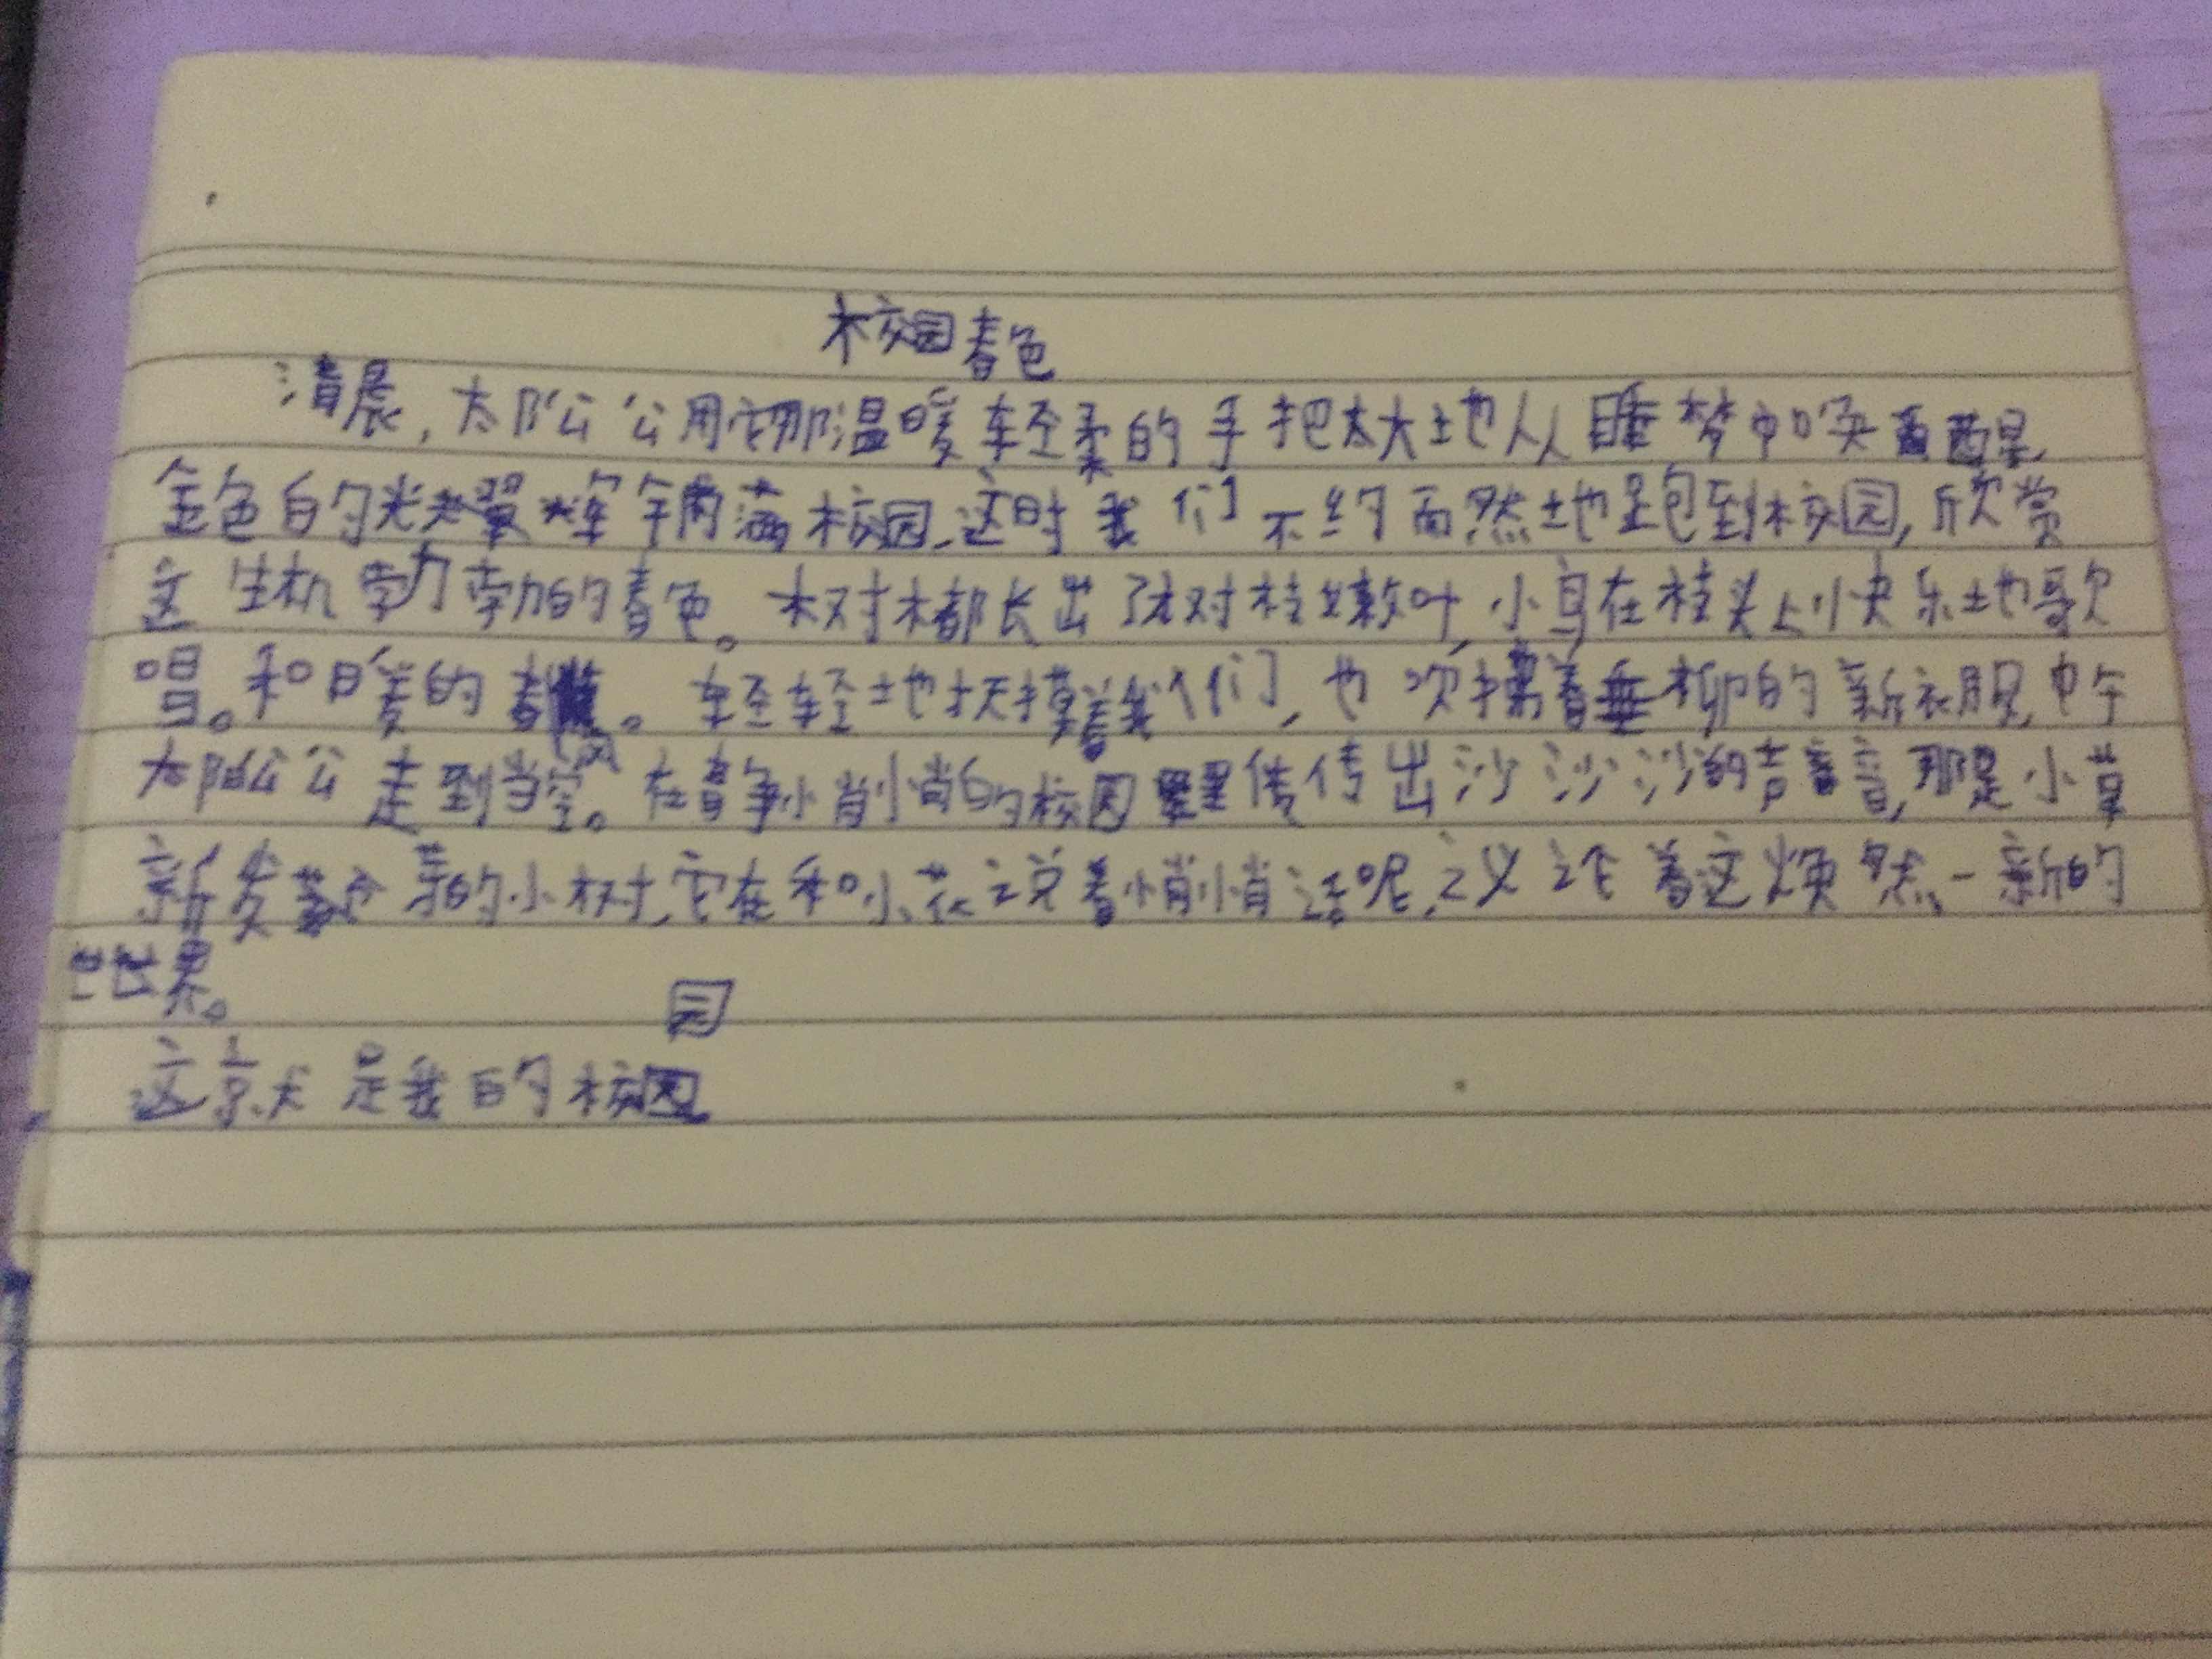 校园春色
清晨,太阳公公用它那温暖轻柔的手把大地从睡梦中唤醒
金色的光辉铺满校园.这时我们不约而然地跑到校园,欣赏
这生机勃勃的春色。树木都长出了树枝嫩叶,小鸟在枝头上快乐地歌
唱。和暖的春风。轻轻地抚摸着我们,也吹着垂柳的新衣服,中午
太阳公公走到当空。在静悄悄的校园里传出沙沙沙的声音,那是小草
新发芽的小树,它在和小花说着悄悄话呢,议论着这焕然一新的
世界。
园
这就是我的校